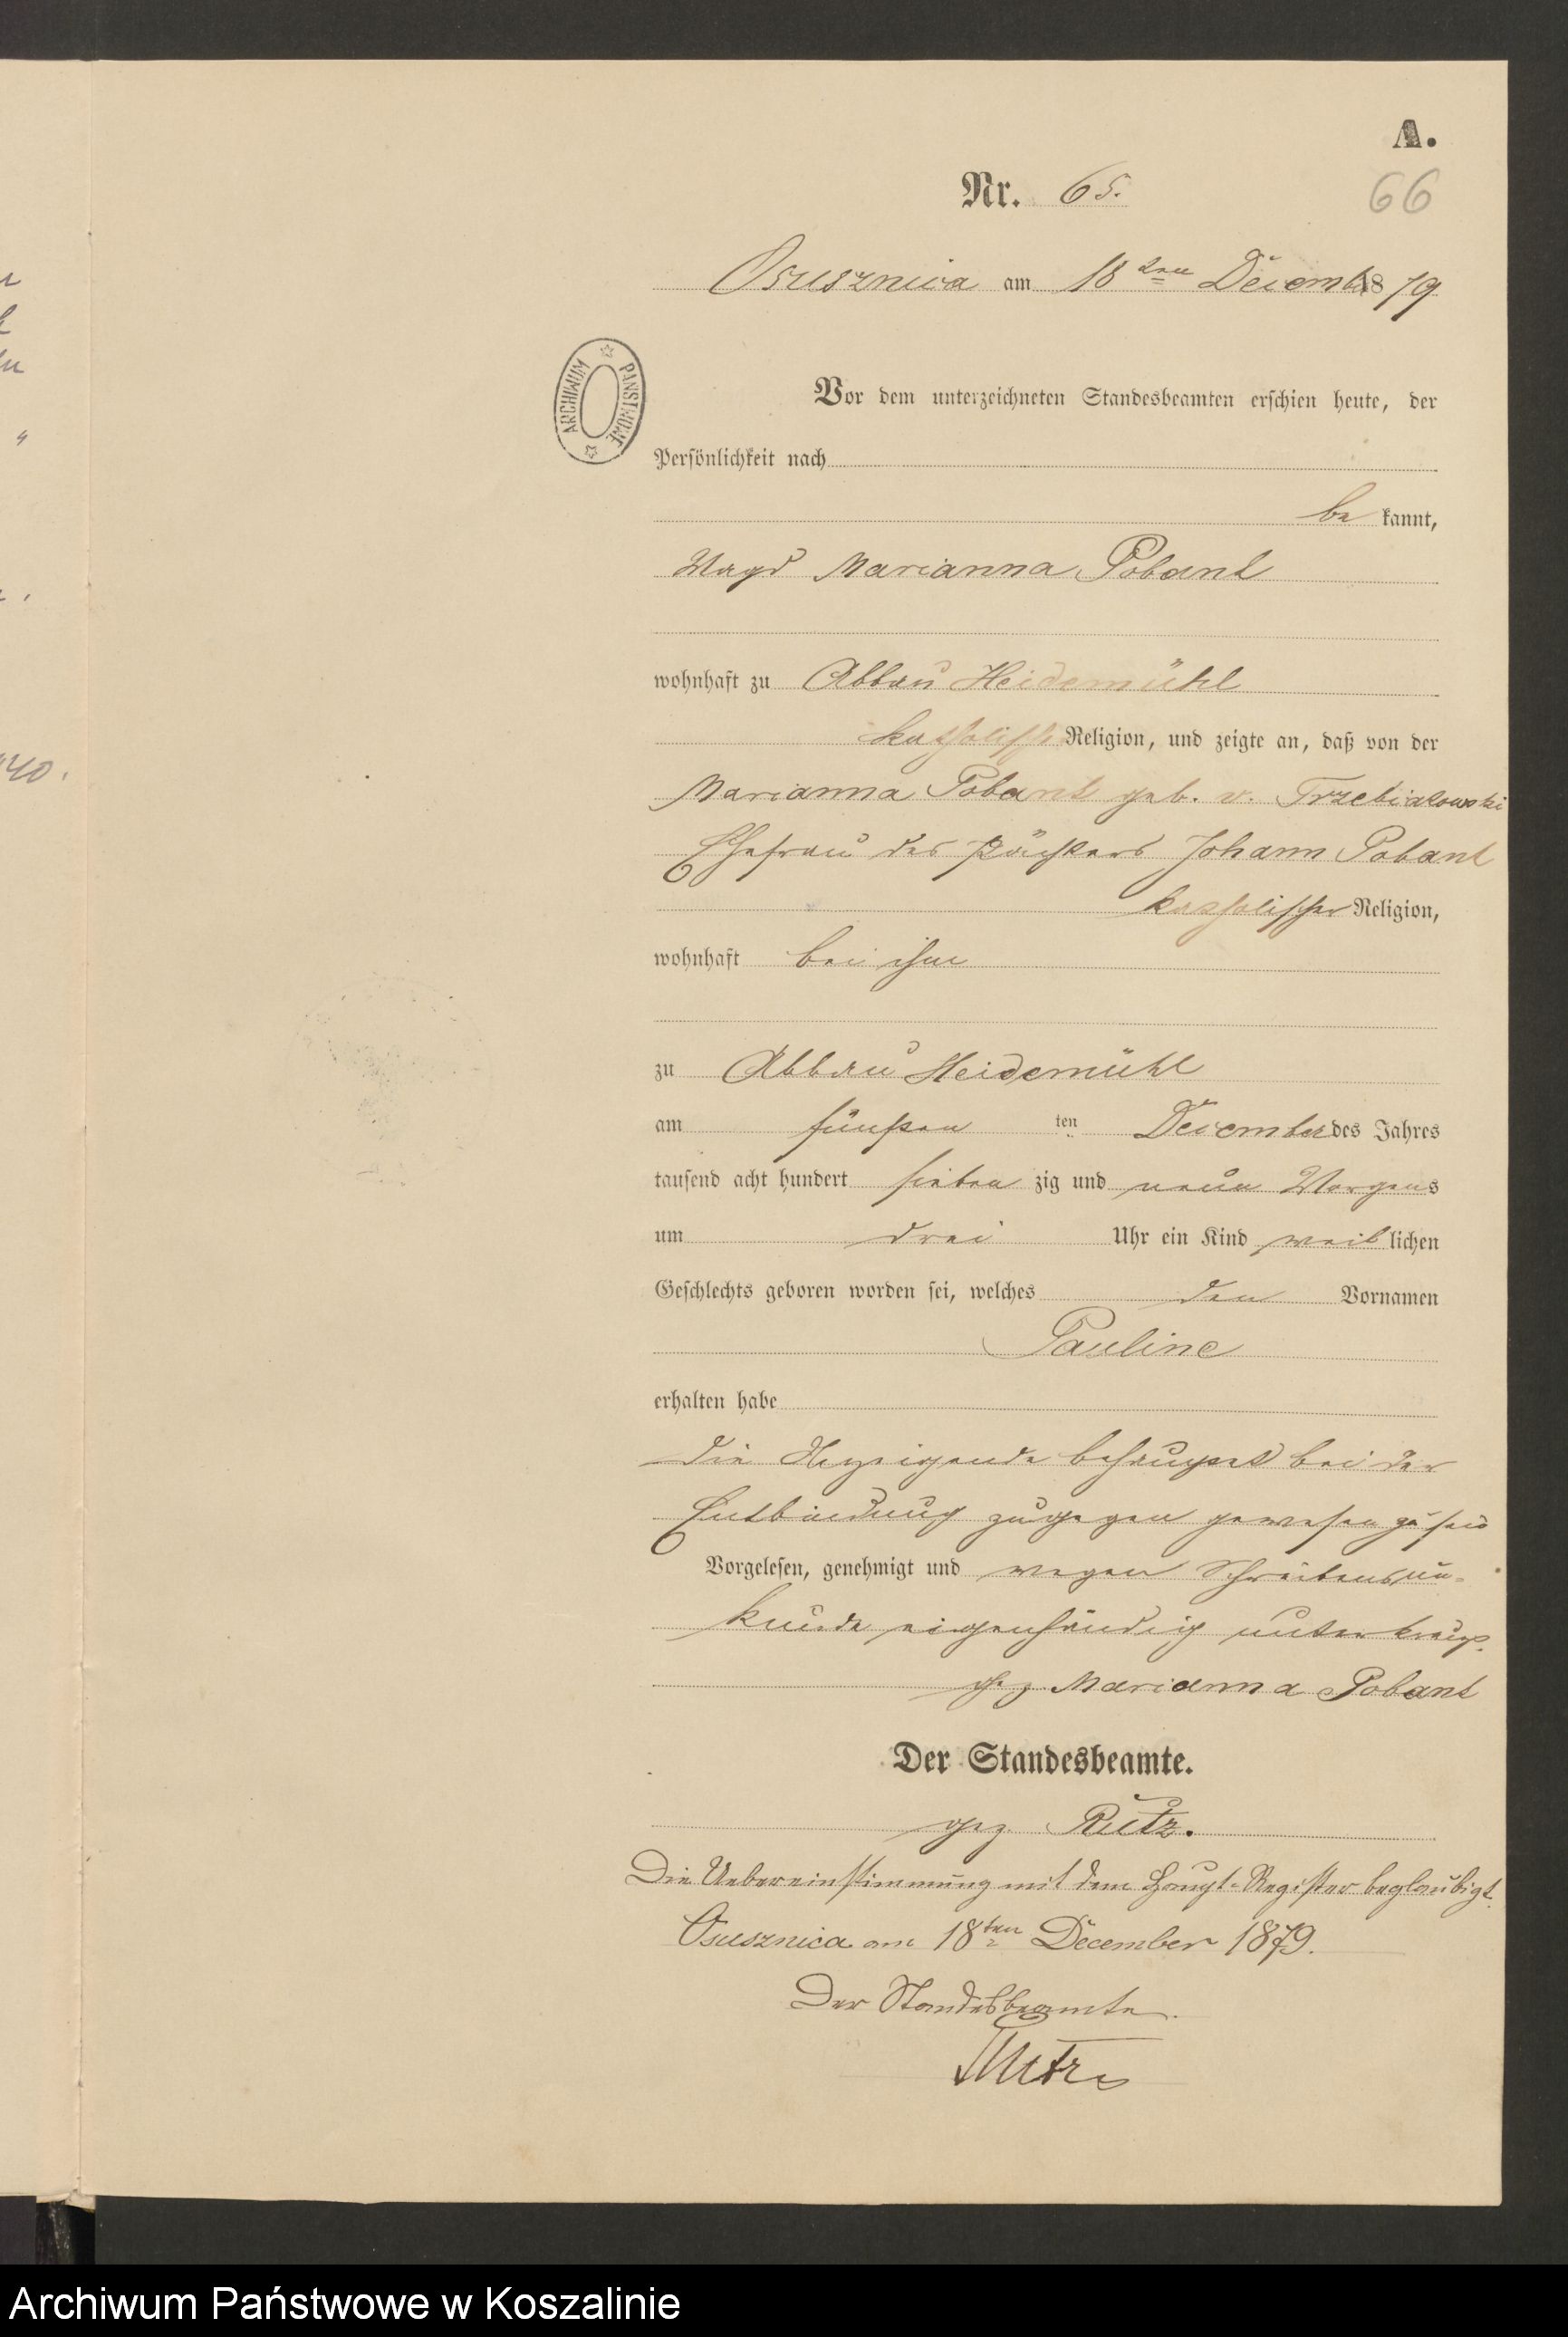 A.
Nr. 65.
66
Osusznica am 18ten Decemb. 1879
Vor dem unterzeichneten Standesbeamten erschien heute, der
ARCHIWUM PAŃSTWOWE
Persönlichkeit nach
be kannt,
Magd Marianna Pobant
wohnhaft zu Abbau Heidemühl
katholische Religion, und zeigte an, daß von der
Marianna Pobant geb. v. Trzebiatowski
Ehefrau des Pächters Johann Pobant
katholischer Religion,
wohnhaft bei ihm
zu Abbau Heidemühl
am fünften ten December des Jahres
tausend acht hundert sieben zig und neun Morgens
um drei Uhr ein Kind weib lichen
Geschlechts geboren worden sei, welches den Vornamen
Pauline
erhalten habe
die Anzeigende behauptet bei der
Entbindung zugegen gewesen zu sein
Vorgelesen, genehmigt und wegen Schreibensun-
kunde eigenhändig unterkreuzt.
gez Marianna Pobant
Der Standesbeamte.
gez Rutz.
Die Uebereinstimmung mit dem Haupt-Register beglaubigt.
Osusznica am 18ten December 1879.
Der Standesbeamte.
Rutz
40.
Archiwum Państwowe w Koszalinie